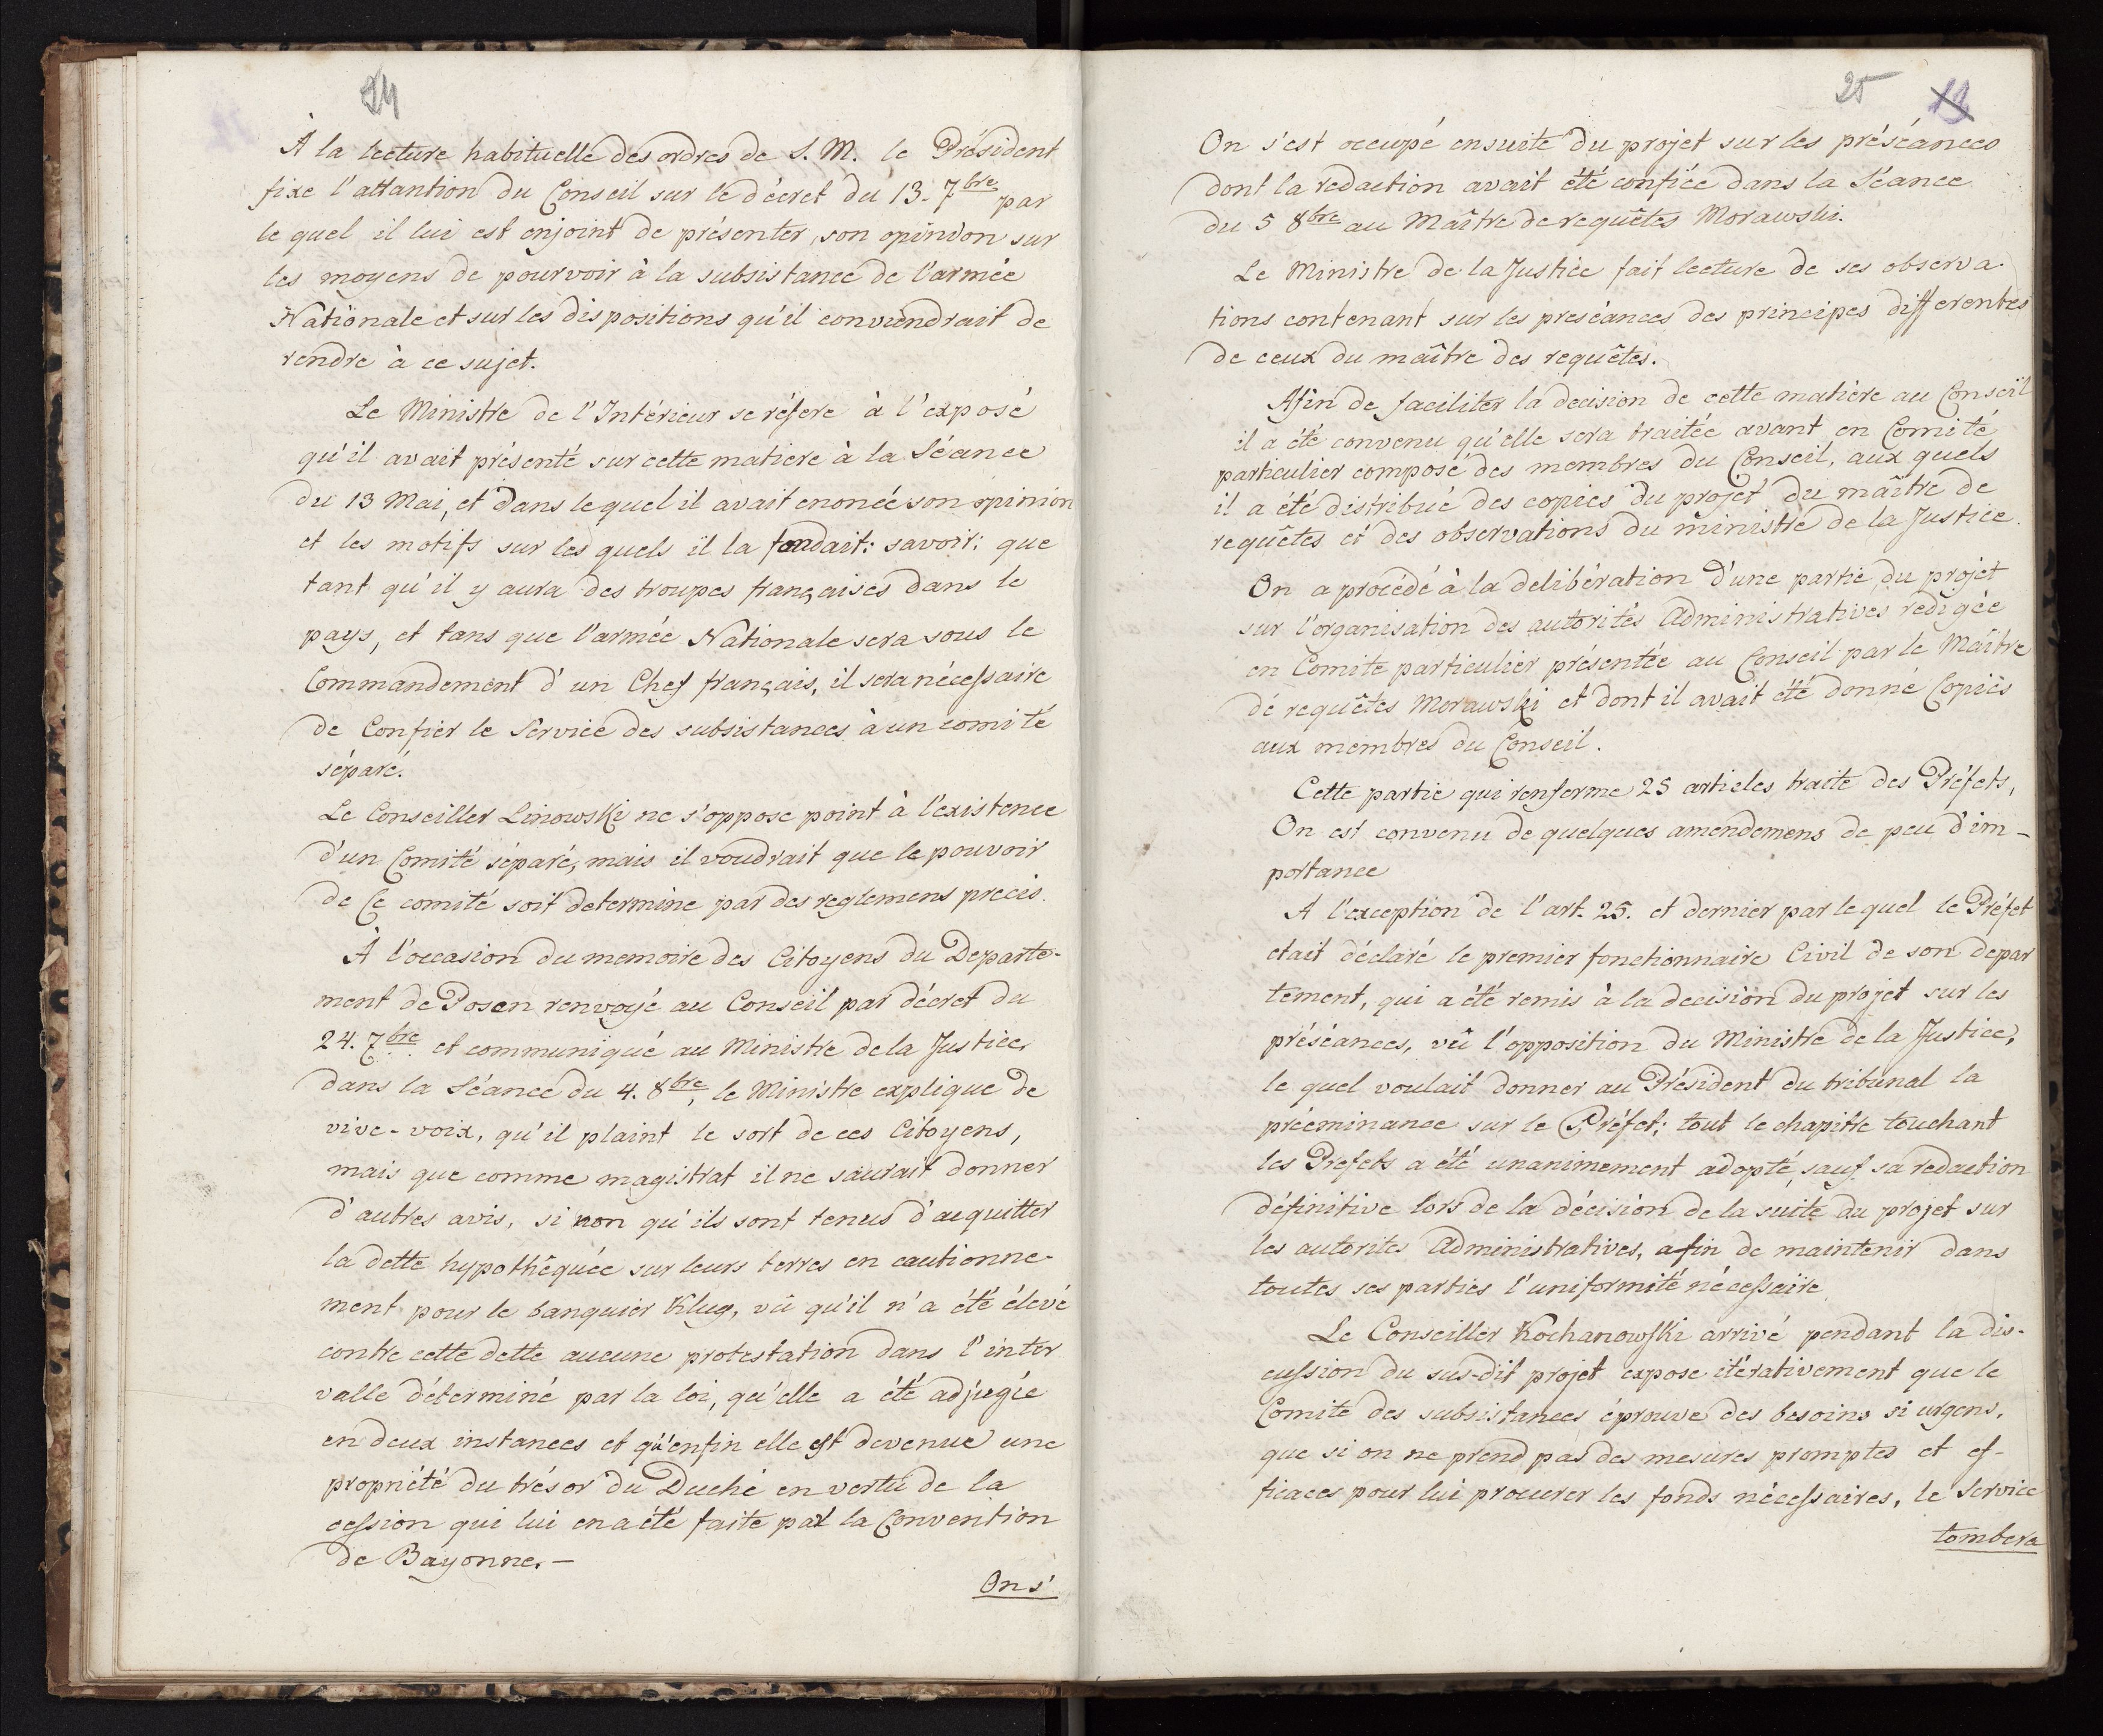 24
À la lecture habituelle des ordres de S. M. le Président
fixe l'attantion du Conseil sur le décret du 13. 7bre par
le quel il lui est enjoint de présenter, son opinion sur
les moyens de pourvoir à la subsistance de l'armée
Nationale et sur les dispositions qu'il conviendrait de
rendre à ce sujet.
Le Ministre de l'Intérieur se réfere à l'exposé
qu'il avait présenté sur cette matiere à la Séance
du 13 Mai, et dans le quel il avait enoncée son opinion
et les motifs sur les quels il la fondait: savoir: que
tant qu'il y aura des troupes françaises dans le
pays, et tans que l'armée Nationale sera sous le
Commandement d'un Chef français, il sera nécessaire
de Confier le Service des subsistances à un comité
séparé.
Le Conseiller Linowski ne s'oppose point à l'existence
d'un Comité séparé, mais il voudrait que le pouvoir
de Ce comité soit determine par des reglemens precis.
À l'occasion du memoire des Citoyens du Departe-
ment de Posen renvoyé au Conseil par décret du
24. 7bre et communiqué au Ministre de la Justice,
dans la Séance du 4. 8bre, le Ministre explique de
vive-voix, qu'il plaint le sort de ces Citoyens,
mais que comme magistrat il ne saurait donner
d'autres avis, si non qu'ils sont tenus d'acquitter
la dette hypothêquée sur leurs terres en cautionne-
ment pour le banquier Klug, vû qu'il n'a été élevé
contre cette dette aucune protestation dans l'inter
valle déterminé par la loi, qu'elle a été adjugée
en deux instances et qu'enfin elle est devenue une
propriété du trésor du Duché en vertu de la
cession qui lui en a été faite par la Convention
de Bayonne. —
On s'
25 13
On s'est occupé ensuite du projet sur les préséances
dont la redaction avait été confiée dans la Séance
du 5 8bre au Maître de requêtes Morawski.
Le Ministre de la Justice fait lecture de ses observa-
tions contenant sur les preséances des principes differentes
de ceux du maître des requêtes.
Afin de faciliter la decision de cette matière au Conseil
il a été convenu qu'elle sera traitée avant en Comité
particulier composé des membres du Conseil, aux quels
il a été distribué des copies du projet du maître de
requêtes et des observations du ministre de la Justice.
On a procédé à la delibération d'une partie du projet
sur l'organisation des autorités Administratives redigée
en Comite particulier présentée au Conseil par le Maître
de requêtes Morawski et dont il avait été donné Copies
aux membres du Conseil.
Cette partie qui renferme 25 articles traite des Préfets,
On est convenu de quelques amendemens de peu d'im-
portance
A l'exception de l'art. 25. et dernier par le quel le Préfet
etait déclaré le premier fonctionnaire Civil de son depar
tement, qui a été remis à la decision du projet sur les
préséances, vû l'opposition du Ministre de la Justice,
le quel voulait donner au Président du tribunal la
prééminance sur le Préfet; tout le chapitre touchant
les Prefets a été unanimement adopté, sauf sa redaction
définitive lors de la décision de la suite du projet sur
les autorites Administratives, afin de maintenir dans
toutes ses parties l'uniformité nécessaire
Le Conseiller Kochanowski arrivé pendant la dis-
cussion du sus-dit projet expose itérativement que le
Comite des subsistances éprouve des besoins si urgens,
que si on ne prend pas des mesures promptes et ef-
ficaces pour lui procurer les fonds nécessaires, le Service
tombera